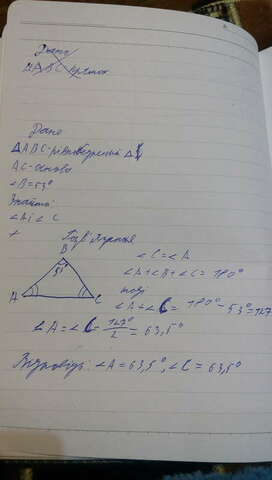 Дано
∠ABC - прямок
Дано
△ABC - рівнобедрений △
AC - основа
∠B = 53°
Знайти
∠A і ∠C
Розв'язання
B
53°
A C
∠C = ∠A
∠A + ∠B + ∠C = 180°
тоді
∠A + ∠C = 180° - 53° = 127
∠A = ∠C - 127°/2 = 63,5°
Відповідь: ∠A = 63,5°, ∠C = 63,5°